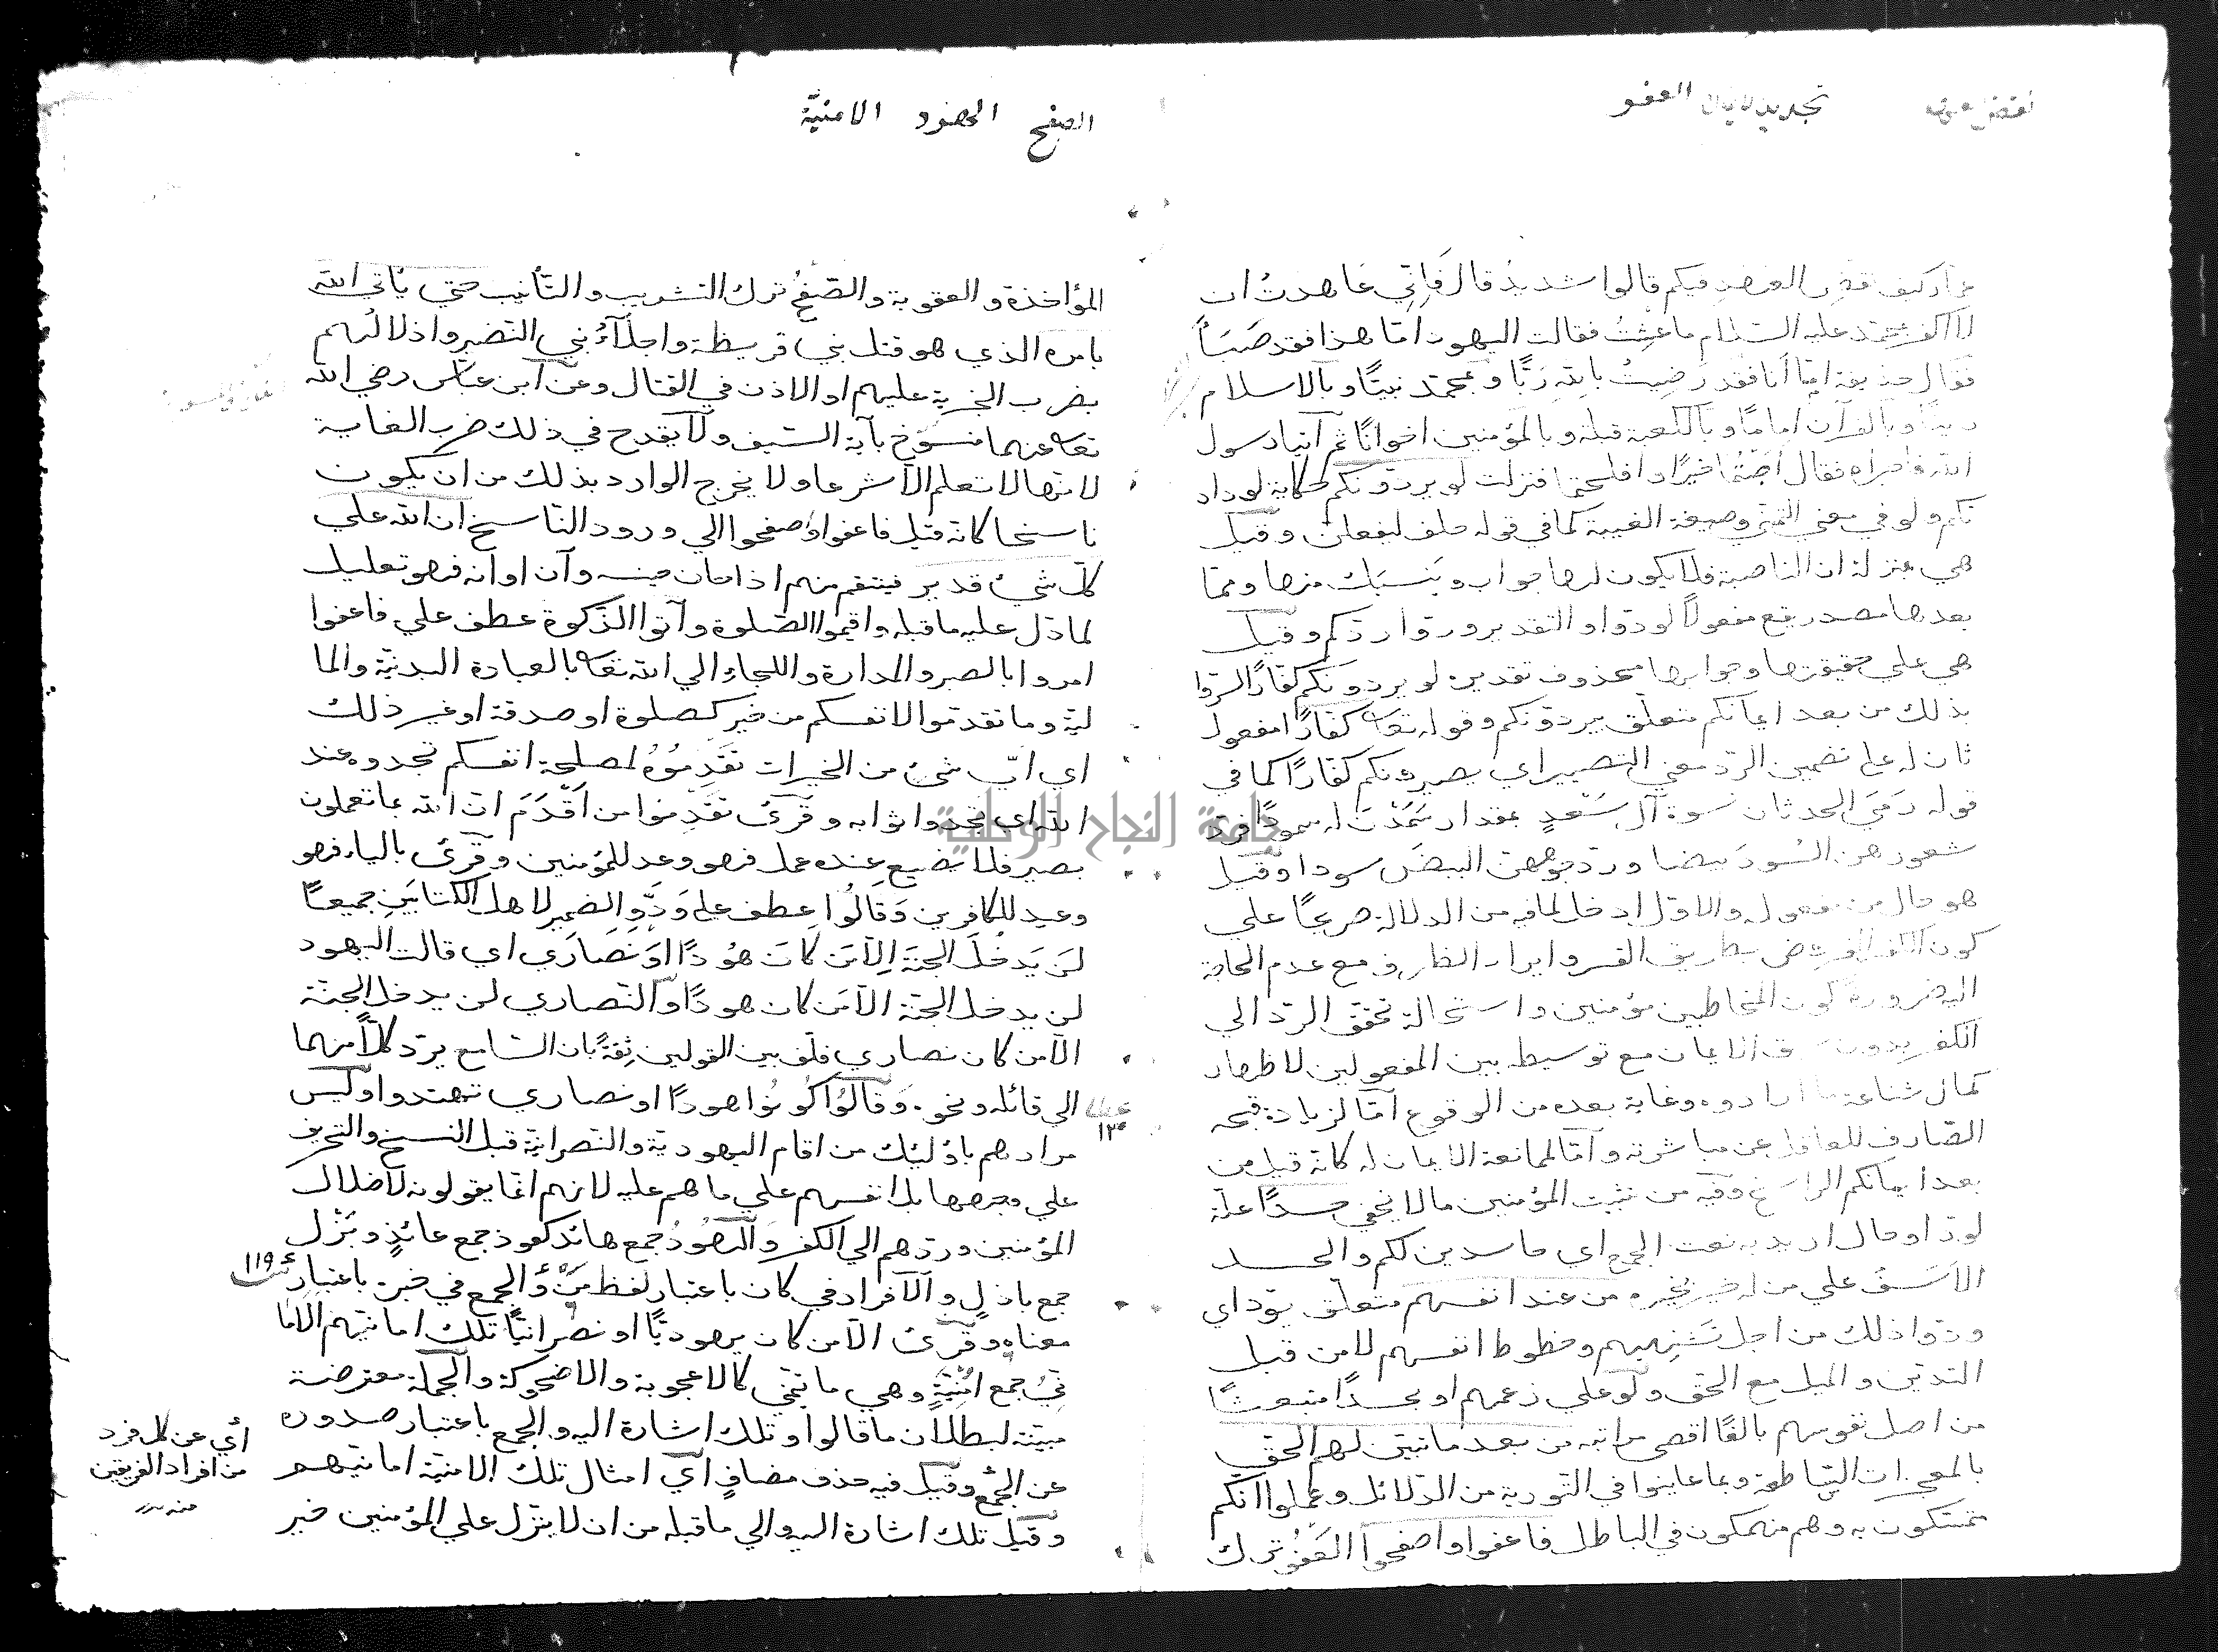 نقض عهد تجديد الايمان العفو
عمار كيف نقض العهد فيكم قالوا شديد قال فاني عاهدت ان
لا اكفر بمحمد عليه السلام ما عشت فقالت اليهود امّا هذا فقد صَبَأ
فقال حذيفة امّا أنا فقد رضيتُ باللهِ رَبًّا وبمحمّد نبيًّا وبالاسلام
دينًا وبالقرآن امامًا وبالكعبة قبلة وبالمؤمنين اخوانًا ثم اتيا رسول
الله فاخبراه فقال اَصَبْتُما خيرًا وافلحتما فنزلت لو يردّونكم حكاية لودادتهم
ولو في معنى التمنّي وصيغة الغيبة كما في قوله حلف ليفعلنّ وقيل
هي بمنزلة ان الناصبة فلا يكون لها جواب وينسبك منها وممّا
بعدها مصدر يقع مفعولًا لودّوا والتقدير ودّوا ردّكم وقيل
هي علي حقيقتها وجوابها محذوف تقديره لو يردونكم كفارًا لسرّوا
بذلك من بعد ايمانكم متعلّق بيردّونكم وقوله تعا كفارًا مفعول
ثان له على تضمين الردّ معني التصيير اي يصيرونكم كفّارًا كما في
قوله رَمَيَ الحدثان نسوة آل سَعْدٍ بمقدار سَمَدْنَ له سمودًا فردّ
شعورهن السُودَ بيضا وردّ وجوههنّ البيضَ سودا وقيل
هو حال من مفعوله والاوّل ادخل لما فيه من الدلالة صريحًا علي
كون الكفر المفروض بطريق القسر وايراد الظرف مع عدم الحاجة
اليه ضرورة كون المخاطبين مؤمنين واستحالة تحقق الردّ الي
الكفر بدون سبق الايمان مع توسيطه بين المفعولين لاظهار
كمال شناعة ما ارادوه وغاية بعده من الوقوع امّا لزيادة قبحه
الصّارف للعاقل عن مباشرته وامّا لممانعة الايمان له كانّه قيل من
بعد ايمانكم الراسخ وفيه من تثبيت المؤمنين ما لا يخفي حسدًا علّة
لودّ او حال اريد به نعت الجمع اي حاسدين لكم والحسد
الاَسَفُ علي من له خير بخيره من عند انفسهم متعلّق بودّ اي
ودّوا ذلك من اجل تشهّيهم وحظوظ انفسهم لا من قبل
التديّن والميل مع الحقّ ولو علي زعمهم او بحسدًا منبعثًا
من اصل نفوسهم بالغًا اقصى مراتبه من بعد ما تبيّن لهم الحقّ
بالمعجزات السّاطعة وبما عاينوا في التّورية من الدّلائل وعملوا انكم
متمسّكون به وهم منهمكون في الباطل فاعفوا واصفحوا العَفْوُ ترك
الصفح الهود الامنيّة
المؤاخذة والعقوبة والصّفحُ ترك التثريب والتّأنيب حتي يأتي الله
بامره الذي هو قتل بني قريظة واجلاءُ بني النضير واذلالُهم
بضرب الجزية عليهم او الاذن في القتال وعن ابن عباس رضي الله
تعا عنهما منسوخ بآية السّيف ولا يقدح في ذلك ضرب الغاية
لانّها لا تعلم الّا شرعا ولا يخرج الوارد بذلك من ان يكون
ناسخا كانّه قيل فاعفوا واصفحوا الي ورود الناسخ انّ الله علي
كلّ شيءٍ قدير فينتقم منهم اذا حان حينه وآن اوانه فهو تعليل
لما دلّ عليه ما قبله واقيموا الصّلوة وآتوا الزّكوة عطف علي فاعفوا
امروا بالصبر والمدارة واللجاء الي الله تعا بالعبادة البدنيّة والما
ليّة وما تقدّموا لانفسكم من خير كصلوة او صدقة او غير ذلك
اي ايّ شيءٍ من الخيرات تُقَدِّمُوُهُ لمصلحة انفسكم تجدوه عند
الله اي تجدوا ثوابه وقرئ تُقْدِموا من اَقْدَمَ انّ الله بما تعملون
بصير فلا يضيع عنده عمل فهو وعد للمؤمنين وقرئ بالياء فهو
وعيد للكافرين وَقالُوا عطف على وَدَّ والضمير لاهل الكتابَينِ جميعًا
لَنْ يَدخُلَ الجنّة اِلّا مَن كانَ هُودًا اَوْ نَصارَي اي قالت اليهود
لن يدخل الجنّة الّا مَن كان هودًا والنّصاري لن يدخل الجنّة
الّا من كان نصاري فلفّ بين القولين ثِقةً بان السّامع يردّ كلًّا منهما
الي قائله ونحوه وَقالُوا كُونُوا هودًا او نصاري تهتدوا وليس
مرادهم باولئك من اقام اليهوديّة والنّصرانيّة قبل النسخ والتحريف
علي وجهها بل انفسهم علي ما هم عليه لانهم انّما يقولونه لاضلال
المؤمنين وردّهم الي الكفر والهُودُ جمع هائد كعوذ جمع عائذٍ وبُزْل
جمع باذلٍ والافراد في كان باعتبار لفظ مَنْ والجمع في خبره باعتبار
معناه وقرئ الّا من كان يهوديًّا او نصرانيًّا تلك امانيّهم الاما
نيّ جمع اُمنِيَّةٍ وهي ما يتمنّي كالاعجوبة والاضحوكة والجملة معترضة
مبيّنة لبطلان ما قالوا وتلك اشارة اليه والجمع باعتبار صدوره
عن الجمع وقيل فيه حذف مضافٍ اي امثال تلك الامنيّة امانيّهم
وقيل تلك اشارة اليه والي ما قبله من ان لا ينزل علي المؤمنين خير
١٣٥
١١٩
أي عن كل فرد
من افراد الفريقين
منه
جامعة النجاح الوطنية